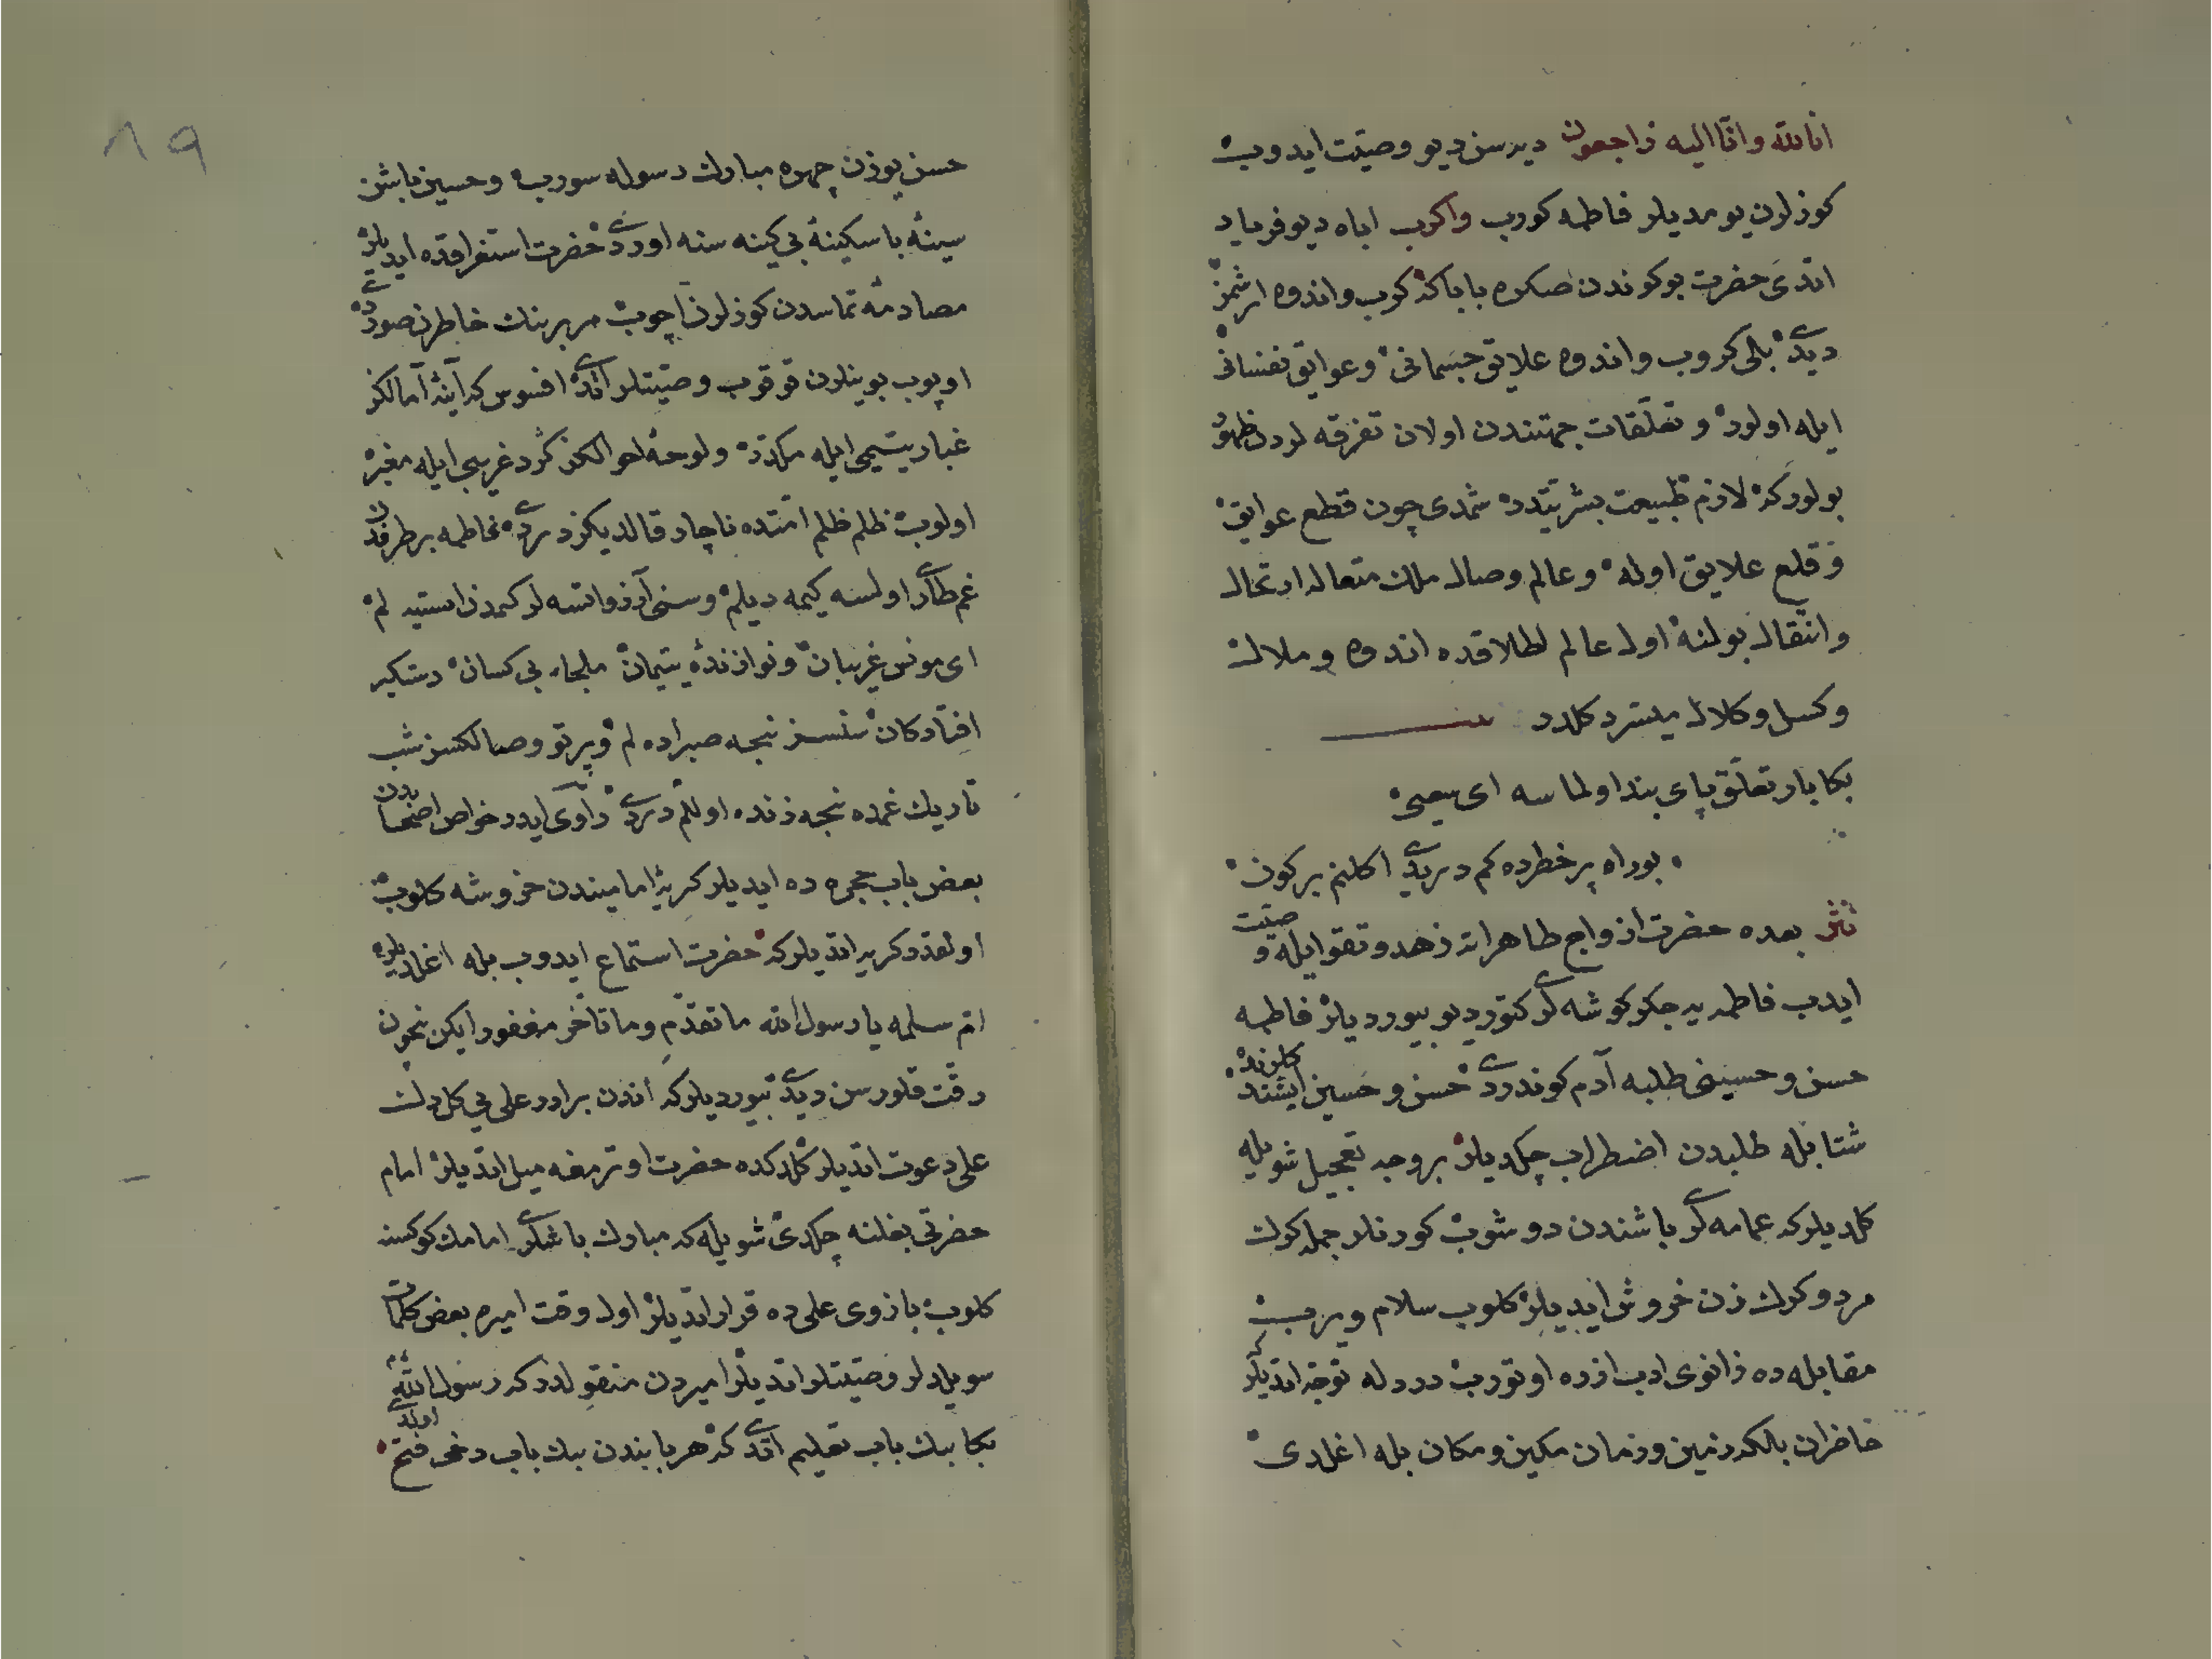 انا لله وانا اليه راجعون ديرسن ديو وصيت ايدوب
كوزلرن يومديلر فاطمه كورب واكرب اباه ديو فرياد
اتدى حضرت بوكوندن صكره باباكه كرب واندوه ارشمز
ديدى بلى كروب واندوه علايق جسمانى وعوايق نفسانى
ايله اولور وتعلقات جهتندن اولان تفرقه لردن ظهور
بولور كه لازم طبيعت بشريتدر شمدى چون قطع عوايق
وقلع علايق اوله وعالم وصال ملك متعاله ارتحال
وانتقال بولنه اول عالم اطلاقده اندوه وملالت
وكسل وكلال ميسر دكلدر
بكا بار تعلق پاى بند اولماسه اى يحيى
بوراه پر خطرده كم دريدى اكلنم بر كون
نثر بعده حضرت ازواج طاهراته زهد وتقوا ايله وصيت
ايدب فاطمه يه جكر كوشه لرى كتور ديو بيورديلر فاطمه
حسن وحسينى طلبه آدم كوندردى حسن وحسين ايشتدكلرنده
شتابله طلبدن اضطراب چكديلر بر وجه تعجيل شويله
كلديلر كه عمامه لرى باشندن دوشوب كورنلر جمله كرك
مرد وكرك زن خروش ايديلر كلوب سلام ويرب
مقابله ده زانوى ادب ازره اوتورب دردله توجه اتديلر كه
حاضران بلكه زمين وزمان مكين ومكان بله اغلدى
١٩
حسن يوزن چهره مبارك رسوله سورب وحسين باشن
سينه باسكينه بى كينه سنه اوردى حضرت استغراقده ايديلر
مصادمه تماسدن كوزلرن اچوب هر برينك خاطرن صوردى
اوپوب بوينلرن قوقوب وصيتلر اتدى افسوس كه آينه آمالكز
غبار يتيمى ايله مكدر ولوحه احوالكز كرد غريبى ايله مغبر
اولوب ظلم ظلم امتده ناچار قالديكز ديردى فاطمه بر طرفدن
غم طاري اولسه كيمه ديلم وسنى آرزو اتسه لر كمدن استيه لم
اى مونس غريبان ونوازنده يتيمان ملجاء بى كسان دستكير
افتادكان سنسز نيجه صبر اده لم وپرتو وصالكسز شب
تاريك غمده نيجه زنده اولالم ديردى راوى ايدر خواص اصحابدن
بعض باب حجره ده ايديلر كريه امامیندن خروشه كلوب
اولقدر كريه اتديلر كه حضرت استماع ايدوب بله اغلديلر
ام سلمه يا رسول الله ما تقدم وما تأخر مغفور ايكن نيچون
رقت قلورسن ديدى بيورديلر كه اندن برادر على يى كل ديك
على دعوت اتديلر كلدكده حضرت اوترمغه ميل اتديلر امام
حضرتى بغلنه چكدى شويله كه مبارك باشلرى امامك كوكسنه
كلوب بازوى على ده قرار اتديلر اول وقت اميره بعض كلمات
سويلديلر وصيتلر اتديلر اميردن منقولدر كه رسول الله
بكا بيك باب تعليم اتدى كه هر بابندن بيك باب دخى فتح اولدى